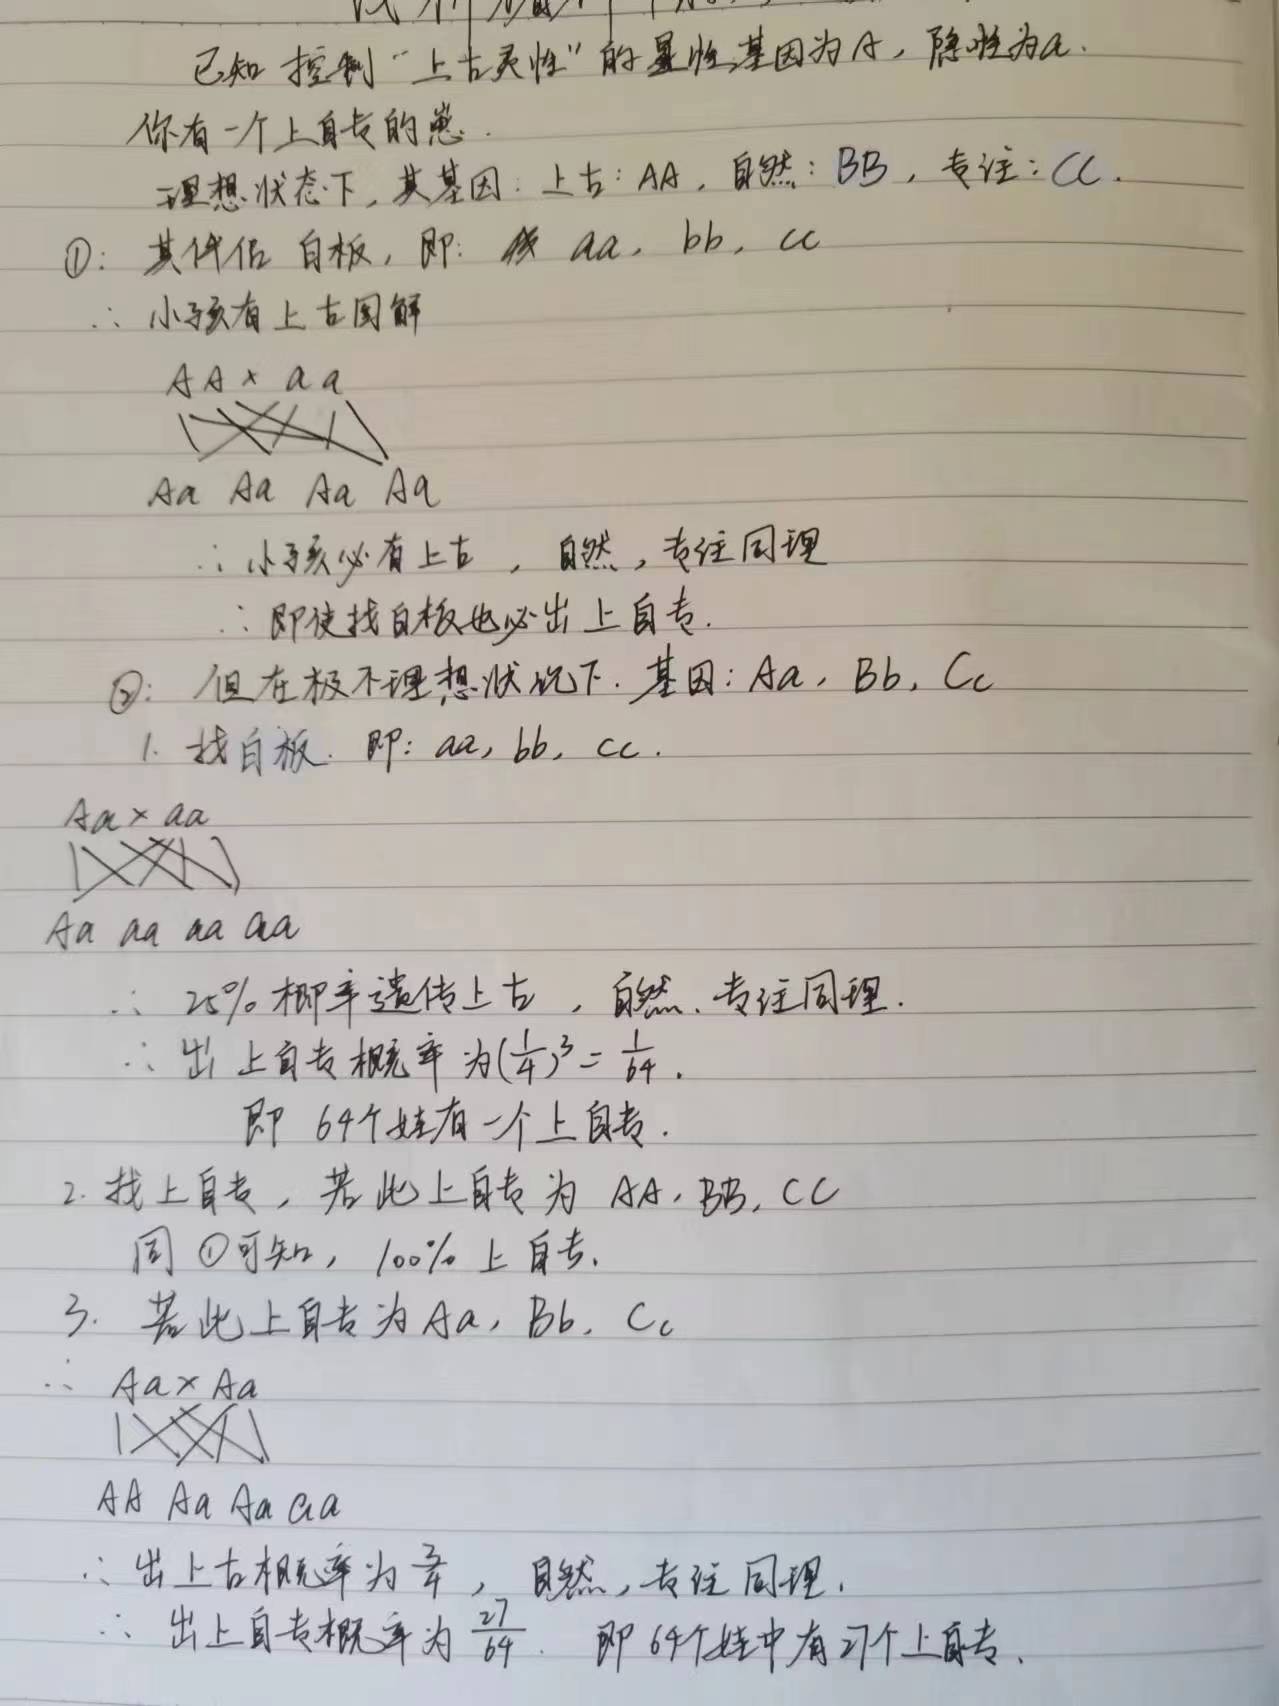 已知控制“上古灵性”的显性基因为A，隐性为a.
你有一个上自专的崽.
理想状态下，其基因：上古：AA，自然：BB，专注：CC.
①：其伴侣白板，即： aa，bb，cc
∴小孩有上古图解
AA × aa
Aa Aa Aa Aa
∴小孩必有上古，自然，专注同理
∴即使找白板也必出上自专.
②：但在极不理想状况下.基因：Aa，Bb，Cc
1.找白板.即：aa，bb，cc.
Aa × aa
Aa aa aa aa
∴25%概率遗传上古，自然、专注同理.
∴出上自专概率为(1/4)³=1/64.
即64个娃有一个上自专.
2.找上自专，若此上自专为AA，BB，CC
同①可知，100%上自专.
3.若此上自专为Aa，Bb，Cc
∴ Aa × Aa
AA Aa Aa aa
∴出上古概率为3/4，自然，专注同理.
∴出上自专概率为27/64.即64个娃中有27个上自专.